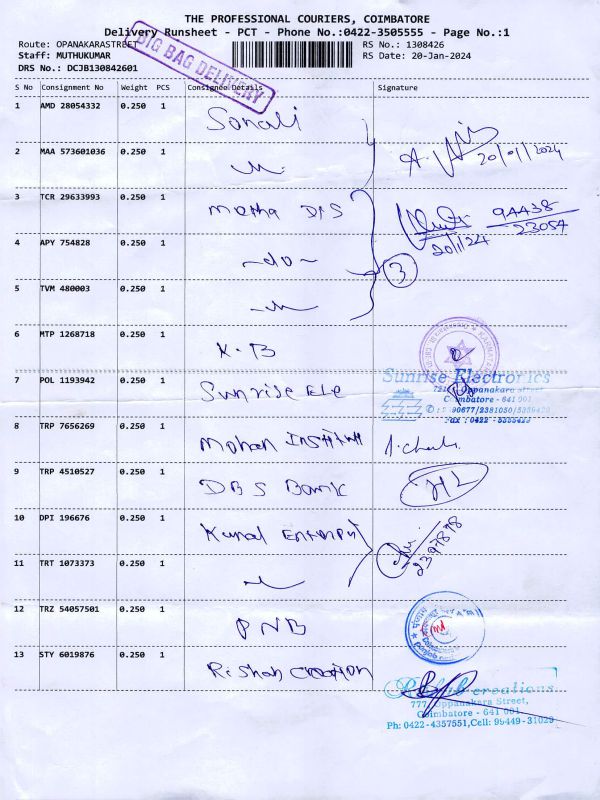 THE PROFESSIONAL COURIERS, COIMBATORE
Delivery Runsheet - PCT - Phone No.:0422-3505555 - Page No.:1
Route: OPANAKARASTREET
RS No.: 1308426
Staff: MUTHUKUMAR
RS Date: 20-Jan-2024
DRS No.: DCJB130842601
BIG BAG DELIVERY
S No Consignment No Weight PCS Consignee Details Signature
1 AMD 28054332 0.250 1 Sonali
2 MAA 573601036 0.250 1 20/01/2024
3 TCR 29633993 0.250 1 94438
23054
20/1/24
4 APY 754828 0.250 1 -do- 3
5 TVM 480003 0.250 1
6 MTP 1268718 0.250 1 K.B
7 POL 1193942 0.250 1 Sunrise Ele
Sunrise Electronics
Oppanakara street
Coimbatore - 641 001
8 TRP 7656269 0.250 1 Mohan
9 TRP 4510527 0.250 1 DBS Bank
10 DPI 196676 0.250 1 Kunal
11 TRT 1073373 0.250 1
12 TRZ 54057501 0.250 1 PNB
13 STY 6019876 0.250 1 Rishab creation
Rishab creations
777, Oppanakara Street,
Coimbatore - 641 001
Ph: 0422-4357551,Cell: 99449-31029